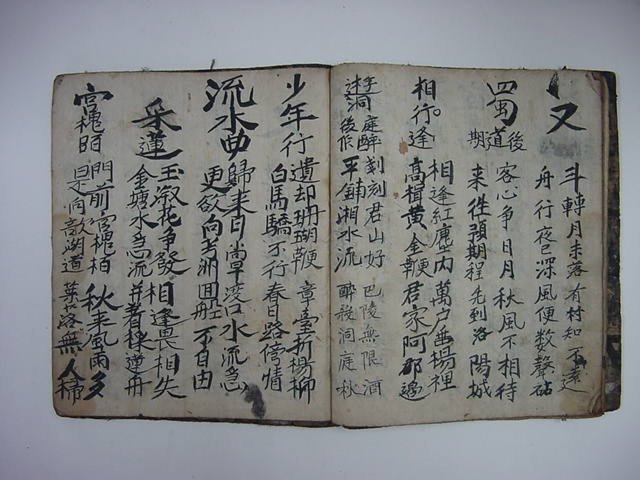 又
斗轉月未落有村知不遠
舟行夜已深風便數聲砧
蜀道後期
客心爭日月秋風不相待
來徃預期程先到洛陽城
相逢行
相逢紅塵內萬戶垂楊裡
高楫黃金鞭君家阿那邊
遊洞庭醉後作
剗刻君山好巴陵無限酒
平鋪湘水流醉殺洞庭秋
少年行
遺却珊瑚鞭章臺折楊柳
白馬驕不行春日路傍情
流水曲
歸來日尚早渡口水流急
更欲向芳洲回舡不自由
采蓮
玉漵花爭發相逢畏相失
金塘水急流并著採蓮舟
宮槐陌
門前宮槐栢秋來風雨多
是洞歆湖道葉落無人掃